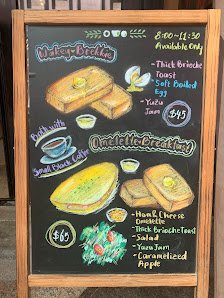 8:00~11:30
Available Only
Wakey-Brekkie
- Thick Brioche
Toast
- Soft Boiled
Egg
- Yuzu
Jam
$45
Both with
Small Black Coffee
Omelette-Breakfast
- Ham & Cheese
Omelette
- Thick Brioche Toast
- Salad
- Yuzu Jam
- Caramelized
Apple
$65